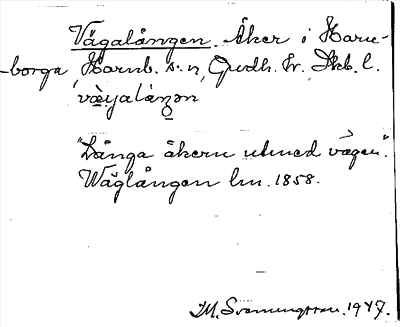 Vägalången. Åker i Harve-
-borga, Harnb. s:n, Gudh. hr., Skb. l.
væyalàŋən
"Långa åkern utmed vägen".
Wäglången lm. 1858.
M. 1947.